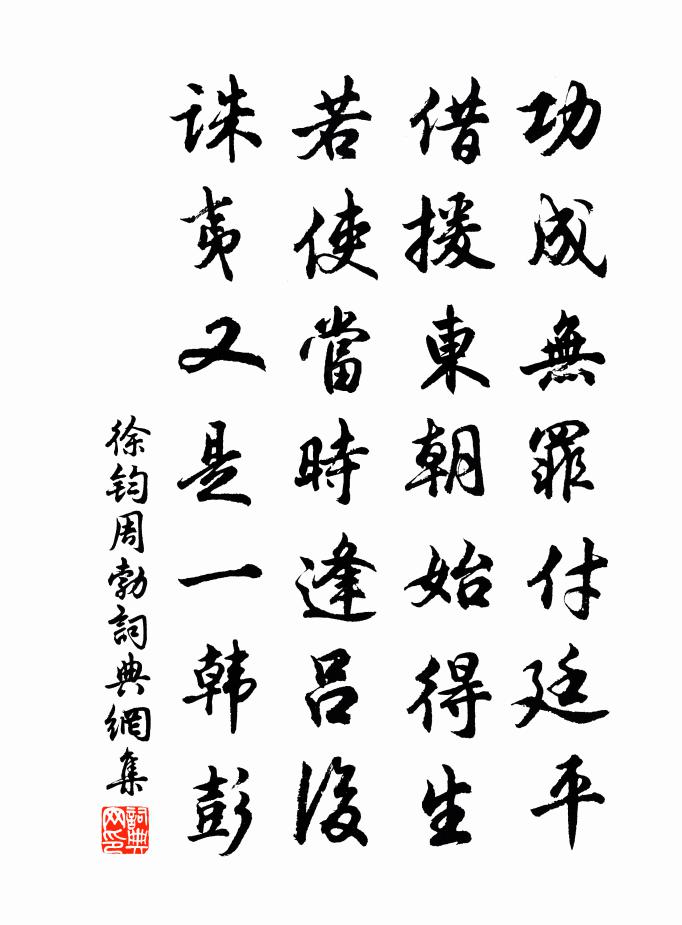 功成無罪付廷平
借援東朝始得生
若使當時逢吕後
誅夷又是一韩彭
徐鈞周勃詞典網集
詞典網印